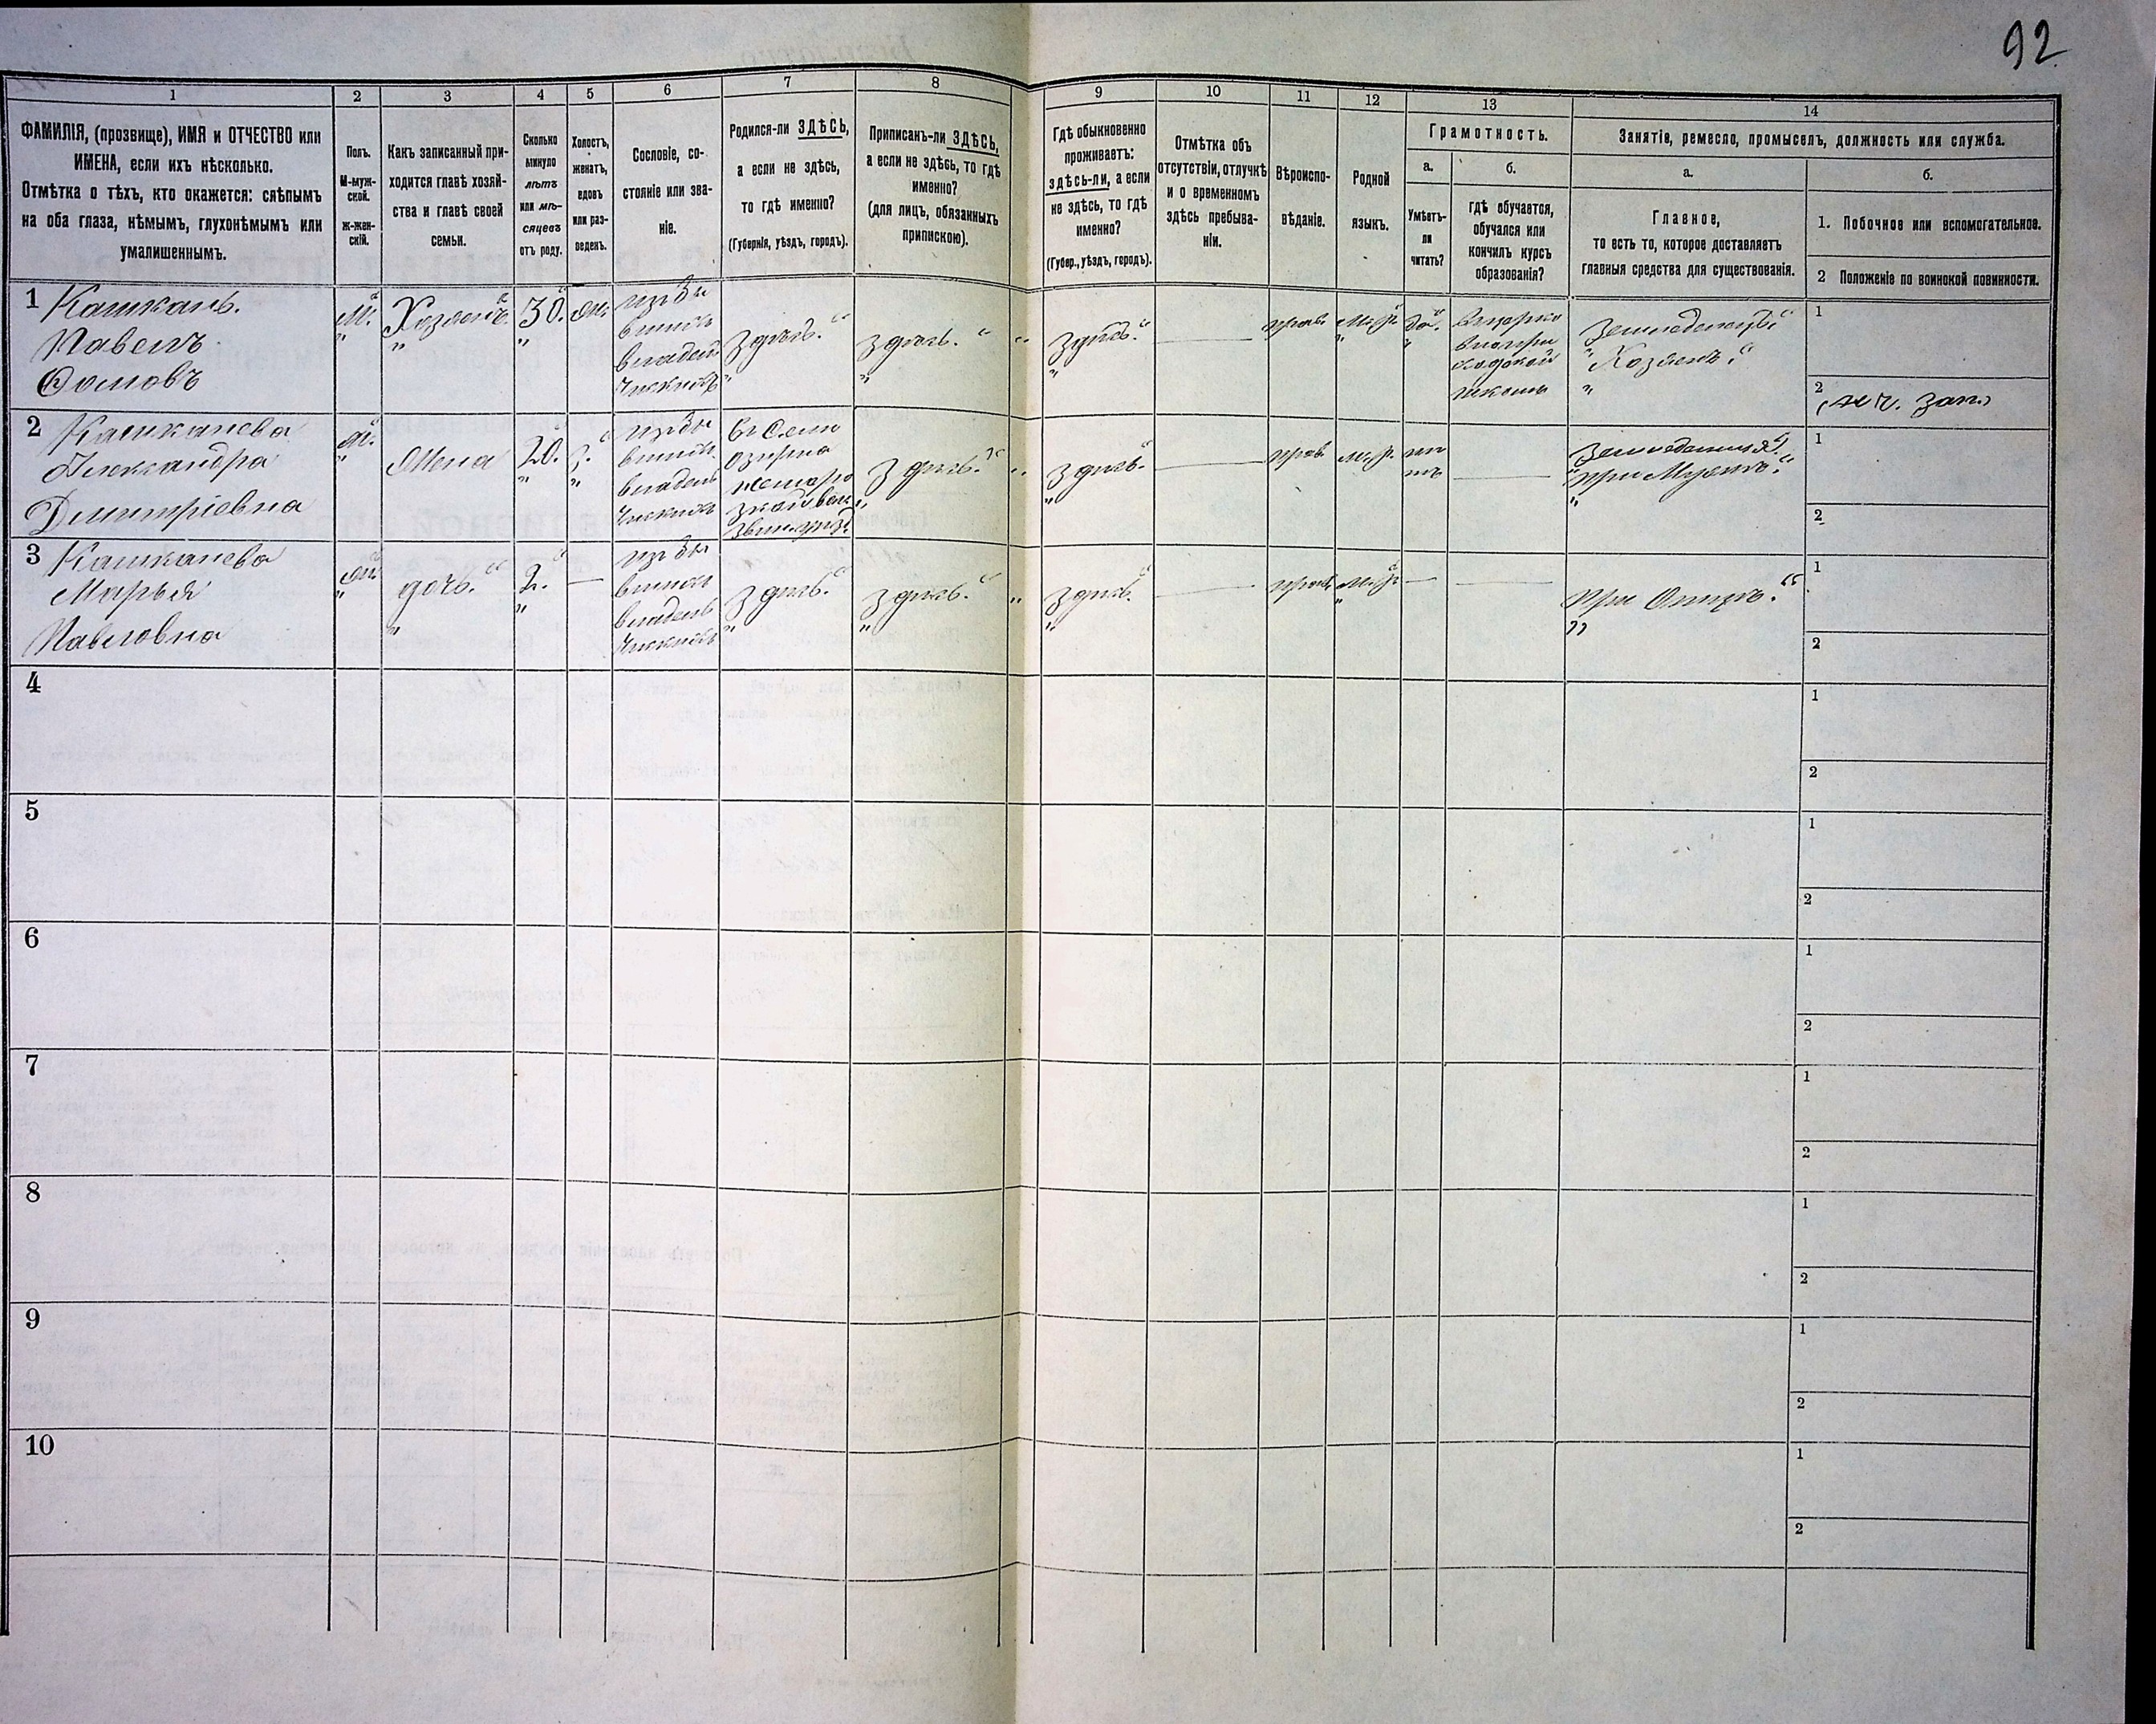 92
1
2
3
4
5
6
7
8
9
10
11
12
13
14
ФАМИЛІЯ, (прозвище), ИМЯ и ОТЧЕСТВО или
ИМЕНА, если ихъ нѣсколько.
Отмѣтка о тѣхъ, кто окажется: слѣпымъ
на оба глаза, нѣмымъ, глухонѣмымъ или
умалишеннымъ.
Полъ.
М-муж-
ской.
ж-жен-
скій.
Какъ записанный при-
ходится главѣ хозяй-
ства и главѣ своей
семьи.
Сколько
минуло
лѣтъ
или мѣ-
сяцевъ
отъ роду.
Холостъ,
женатъ,
вдовъ
или раз-
веденъ.
Сословіе, со-
стояніе или зва-
ніе.
Родился-ли ЗДѢСЬ,
а если не здѣсь,
то гдѣ именно?
(Губернія, уѣздъ, городъ).
Приписанъ-ли ЗДѢСЬ,
а если не здѣсь, то гдѣ
именно?
(для лицъ, обязанныхъ
припискою).
Гдѣ обыкновенно
проживаетъ:
здѣсь-ли, а если
не здѣсь, то гдѣ
именно?
(Губер., уѣздъ, городъ).
Отмѣтка объ
отсутствіи, отлучкѣ
и о временномъ
здѣсь пребыва-
ніи.
Вѣроиспо-
вѣданіе.
Родной
языкъ.
Грамотность.
а.
б.
Умѣетъ-
ли
читать?
гдѣ обучается,
обучался или
кончилъ курсъ
образованія?
Занятіе, ремесло, промыселъ, должность или служба.
а.
б.
Главное,
то есть то, которое доставляетъ
главныя средства для существованія.
1. Побочное или вспомогательное.
2 Положеніе по воинской повинности.
1 Кашкань.
Павелъ
Фомовъ
м.
Хозяинъ
30.
ж.
изъ бы
вших
владел
здѣсь.
здѣсь.
здѣсь.
прав.
м. р.
да.
школѣ
Земледелецъ
Хозяинъ.
1
2
2 Кашканева
Александра
Дмитріевна
ж.
жена
20.
з.
изъ бы
вших
владел
въ Селѣ
здѣсь.
здѣсь.
прав.
м. р.
нѣ
тъ
при Мужѣ.
1
2
3 Кашканева
Марья
Павловна
ж
дочь.
2.
—
изъ бы
вших
владел
здѣсь.
здѣсь.
здѣсь.
прав.
м. р.
—
при Отцѣ.
1
2
4
1
2
5
1
2
6
1
2
7
1
2
8
1
2
9
1
2
10
1
2